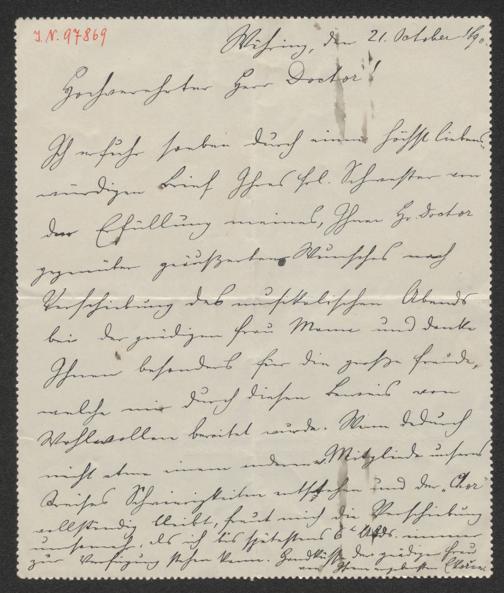 I.N. 97869
Währing, den 21. October 1890
Hochverehrter Herr Doctor!
Ich erfuhr soeben durch einen höchst liebens-
würdigen Brief Ihres frl. Schwester von
der Erfüllung meines, Ihnen Hr. Doctor
gegenüber geäußerten Wunsches nach
Verschiebung des musikalischen Abends
bei der gnädigen Frau Mama und danke
Ihnen besonders für die große Freude,
welche mir durch diesen Beweis von
Wohlwollen bereitet wurde. Wenn dadurch
nicht etwa einem anderen Mitgliede unseres
Kreises Schwierigkeiten entstehen und der "Chor"
vollständig bleibt, freut mich die Verschiebung
umsomehr, als ich bis spätestens 6 Abds. immer
zur Verfügung stehen kann. Handküsse der gnädigen Frau